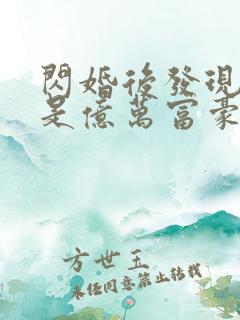 閃婚後發現
是億萬富豪
方世玉
未经同意禁止转载